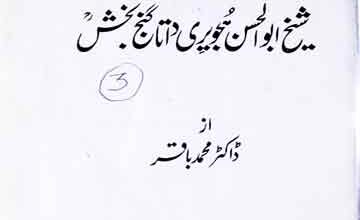 شیخ ابوالحسن ہجویری داتا گنج بخشؒ
3
از
ڈاکٹر محمد باقر